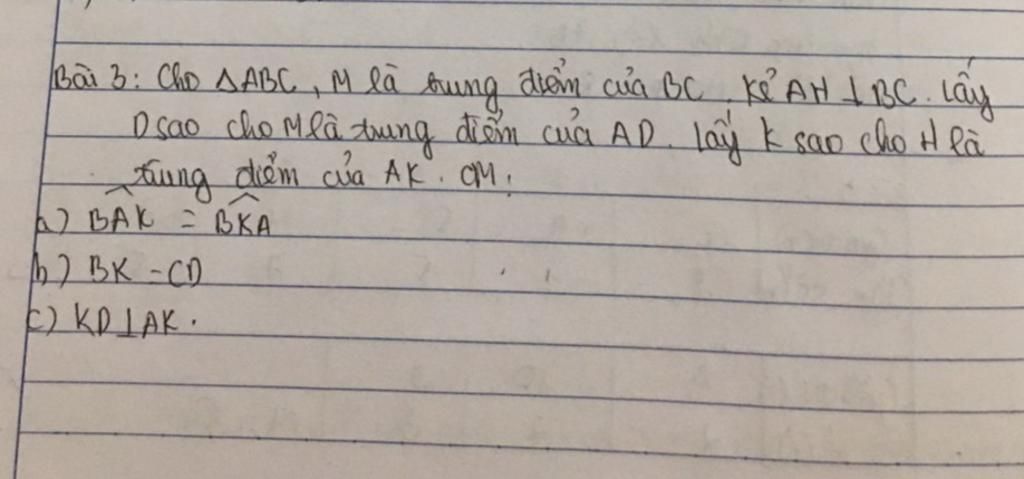 Bài 3: Cho ΔABC, M là trung điểm của BC. Kẻ AH ⊥ BC. Lấy
D sao cho M là trung điểm của AD. Lấy K sao cho H là
trung điểm của AK. CM:
a) \widehat{BAK} = \widehat{BKA}
b) BK = CD
c) KD ⊥ AK.